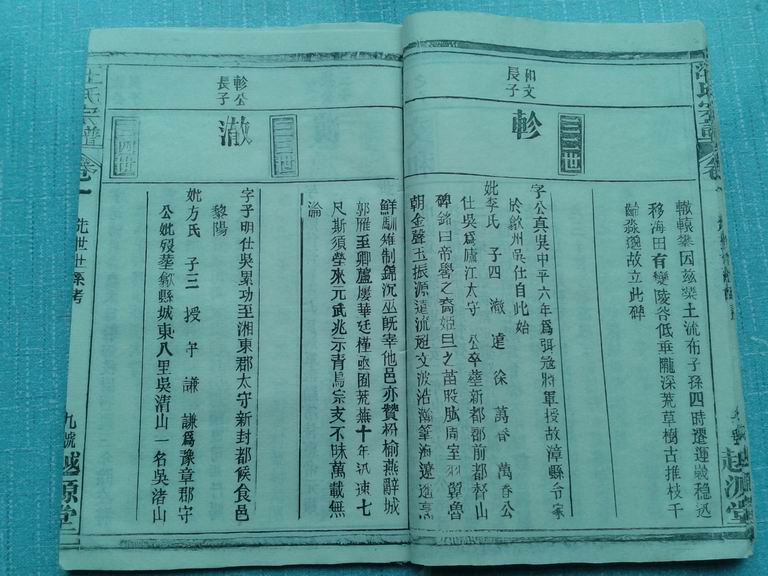 汪氏宗譜
卷一
越源堂
轍轅攀因茲築土流布子孫四時遷運歲穩迍
移海田有變陵谷低垂隴深荒草樹古推枝千
齡淼邈故立此碑
和文
長子
三三世
軫
字公真吳中平六年為弭冠將軍授故漳縣令家
於歙州吳仕自此始
妣李氏 子四 澈 達 徐 萬香 萬香公
仕吳為廬江太守 公卒葬新都郡前都督山
碑銘曰帝嚳之裔姬旦之苗股肱周室羽翼魯
朝金聲玉振源遠流
文波浩瀚筆海遼
鮮馴雉制錦沉巫既宰他邑亦贊枌榆燕辭城
郭雁至卿廬屢華廷槿亟囿荒蕪十年汎速七
尺斯須學來元武兆示青烏宗支不昧萬載無
淪
軫公
長子
三四世
澈
字子明仕吳累功至湘東郡太守新封都侯食邑
黎陽
妣方氏 子三 授 平 謙 謙為豫章郡守
公妣歿葬歙縣城東八里吳清山一名吳渚山
汪氏宗譜
卷一
先世世系考
九號
越源堂